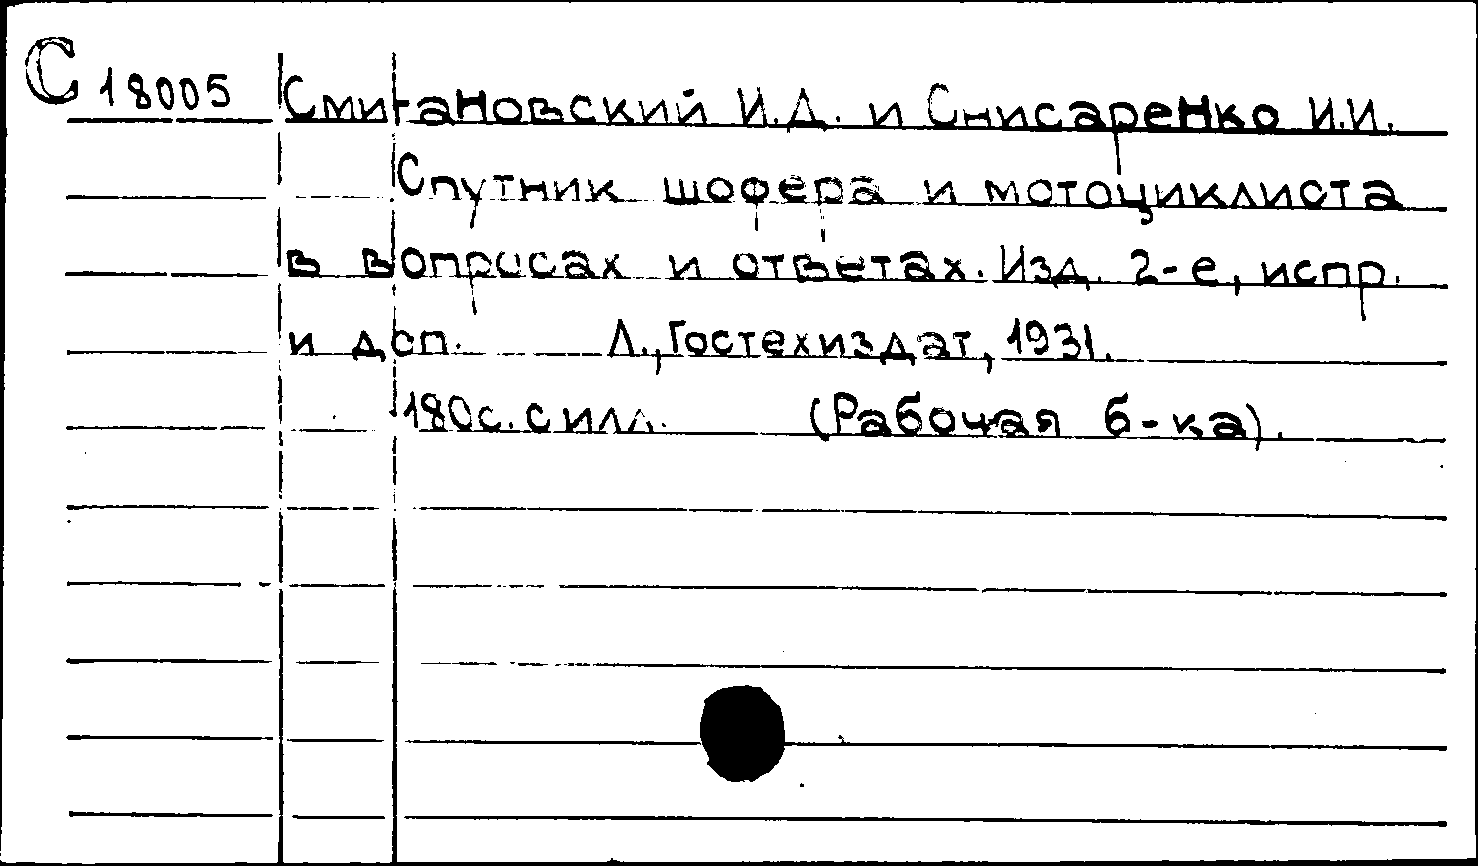 С 18005 Смитановский И.Д. и Снисаренко И.И.
Спутник шофера и мотоциклиста
в вопросах и ответах. Изд. 2-е, испр.
и доп. Л., Гостехиздат, 1931.
180с. с илл. (Рабочая б-ка).